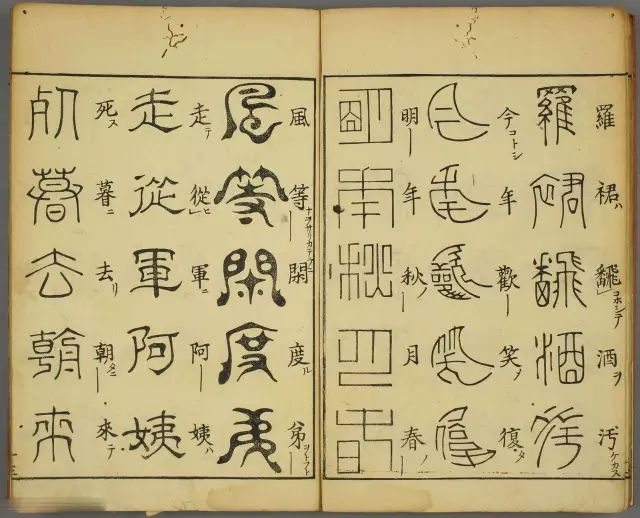 羅裙ハ飜コホシテ酒ヲ汚ケカス
羅裙飜酒汚
今コトシ年歡笑ヲ復タ
今年歡笑復
明年秋ノ月春ノ
明年秋月春
風等閑度ル弟
風等閑度弟
走テ從ヒ軍ニ阿姨ハ
走從軍阿姨
死ス暮ニ去リ朝タニ來テ
死暮去朝來